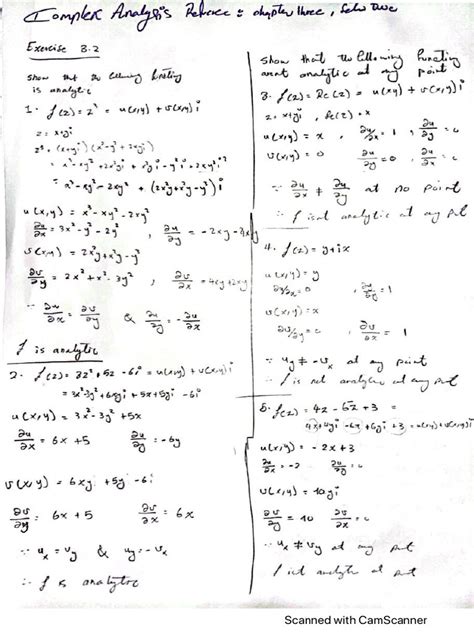 Complex Analysis Refrece : chapter three, Solu Two
Exercise 3.2
show that the following function
is analytic
1. f(z) = z³ = u(x,y) + v(x,y) i
z = x+yi
z³ = (x+yi)(x²-y²+2xyi)
= x³ - xy² + 2x²yi + x²yi - y³i + 2xy²i²
= x³ - xy² - 2xy² + (2x²y+x²y-y³)i
u(x,y) = x³ - xy² - 2xy²
∂u/∂x = 3x² - y² - 2y² , ∂u/∂y = -2xy - 4xy
v(x,y) = 2x²y + x²y - y³
∂v/∂y = 2x² + x² - 3y² , ∂v/∂x = 4xy + 2xy
∵ ∂u/∂x = ∂v/∂y & ∂u/∂y = -∂v/∂x
f is analytic
2. f(z) = 3z² + 5z - 6i = u(x,y) + v(x,y) i
= 3x² - 3y² + 6xyi + 5x + 5yi - 6i
u(x,y) = 3x² - 3y² + 5x
∂u/∂x = 6x + 5 , ∂u/∂y = -6y
v(x,y) = 6xy + 5y - 6
∂v/∂y = 6x + 5 ∂v/∂x = 6x
∵ u_x = v_y & u_y = -v_x
∴ f is analytic
show that the following function
arent analytic at any point
3. f(z) = Re(z) = u(x,y) + v(x,y) i
z = x+yi , Re(z) = x
u(x,y) = x , ∂u/∂x = 1 , ∂u/∂y = 0
v(x,y) = 0 ∂v/∂y = 0 , ∂v/∂x = 0
∵ ∂u/∂x ≠ ∂v/∂y at no point
∴ f isnt analytic at any pnt
4. f(z) = y + ix
u(x,y) = y
∂u/∂x = 0 , ∂u/∂y = 1
v(x,y) = x
∂v/∂y = 0 , ∂v/∂x = 1
∵ u_y ≠ -v_x at any point
∴ f is not analytic at any pnt
5. f(z) = 4z - 6z̄ + 3 =
4x+4yi - 6x + 6yi + 3 = u(x,y) + v(x,y) i
u(x,y) = -2x + 3
∂u/∂x = -2 ∂u/∂y = 0
v(x,y) = 10yi
∂v/∂y = 10 ∂v/∂x = 0
∵ u_x ≠ v_y at any pnt
f isnt analytic at pnt
Scanned with CamScanner